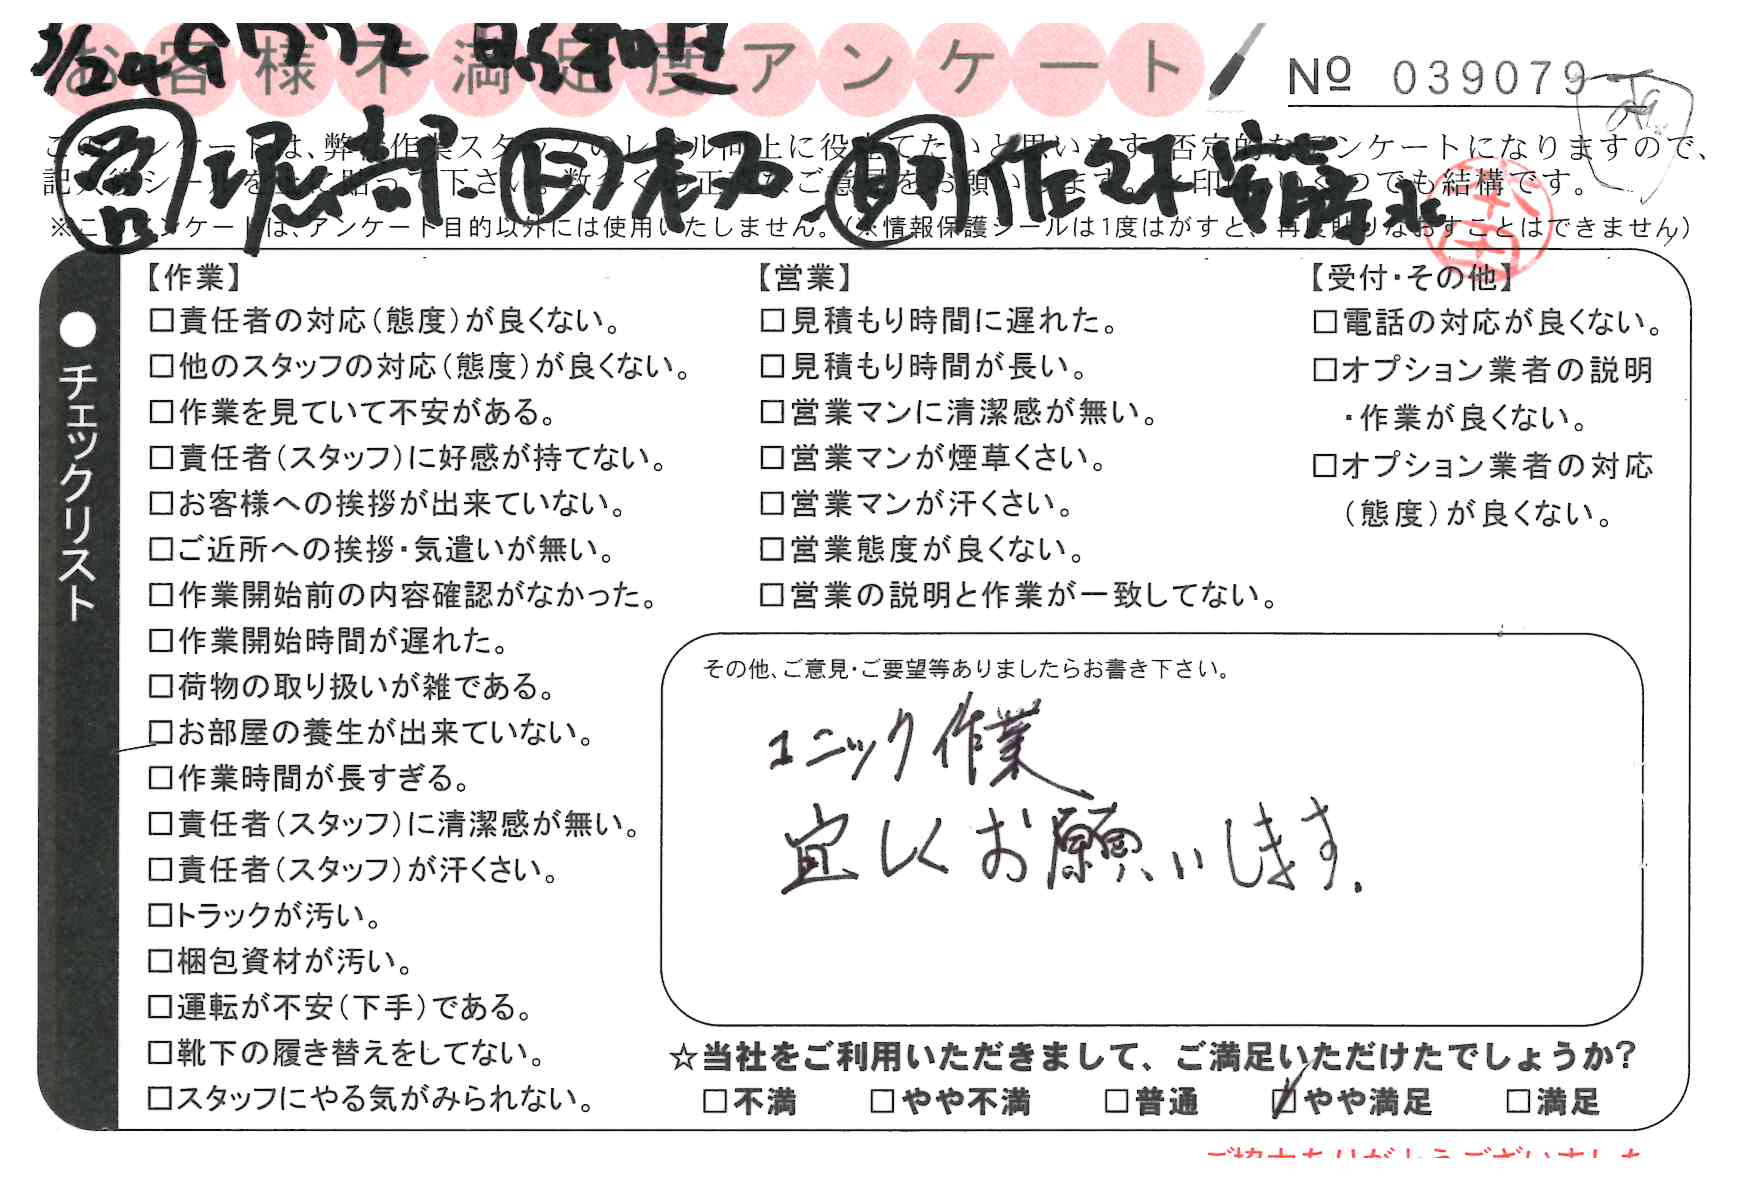 お客様不満足度アンケート
№ 039079
このアンケートは、弊社作業スタッフのレベル向上に役立てたいと思います。否定的なアンケートになりますので、
記入後シールを上に貼って下さい。数多くの正直なご意見をお願いします。(✓印はいくつでも結構です。
※このアンケートは、アンケート目的以外には使用いたしません。(※情報保護シールは1度はがすと、再度貼りなおすことはできません)
●チェックリスト
【作業】
□責任者の対応(態度)が良くない。
□他のスタッフの対応(態度)が良くない。
□作業を見ていて不安がある。
□責任者(スタッフ)に好感が持てない。
□お客様への挨拶が出来ていない。
□ご近所への挨拶・気遣いが無い。
□作業開始前の内容確認がなかった。
□作業開始時間が遅れた。
□荷物の取り扱いが雑である。
□お部屋の養生が出来ていない。
□作業時間が長すぎる。
□責任者(スタッフ)に清潔感が無い。
□責任者(スタッフ)が汗くさい。
□トラックが汚い。
□梱包資材が汚い。
□運転が不安(下手)である。
□靴下の履き替えをしてない。
□スタッフにやる気がみられない。
【営業】
□見積もり時間に遅れた。
□見積もり時間が長い。
□営業マンに清潔感が無い。
□営業マンが煙草くさい。
□営業マンが汗くさい。
□営業態度が良くない。
□営業の説明と作業が一致してない。
【受付・その他】
□電話の対応が良くない。
□オプション業者の説明
・作業が良くない。
□オプション業者の対応
(態度)が良くない。
その他、ご意見・ご要望等ありましたらお書き下さい。
ユニック作業
宜しくお願いします.
☆当社をご利用いただきまして、ご満足いただけたでしょうか?
□不満 □やや不満 □普通 ☑やや満足 □満足
ご協力ありがとうございました